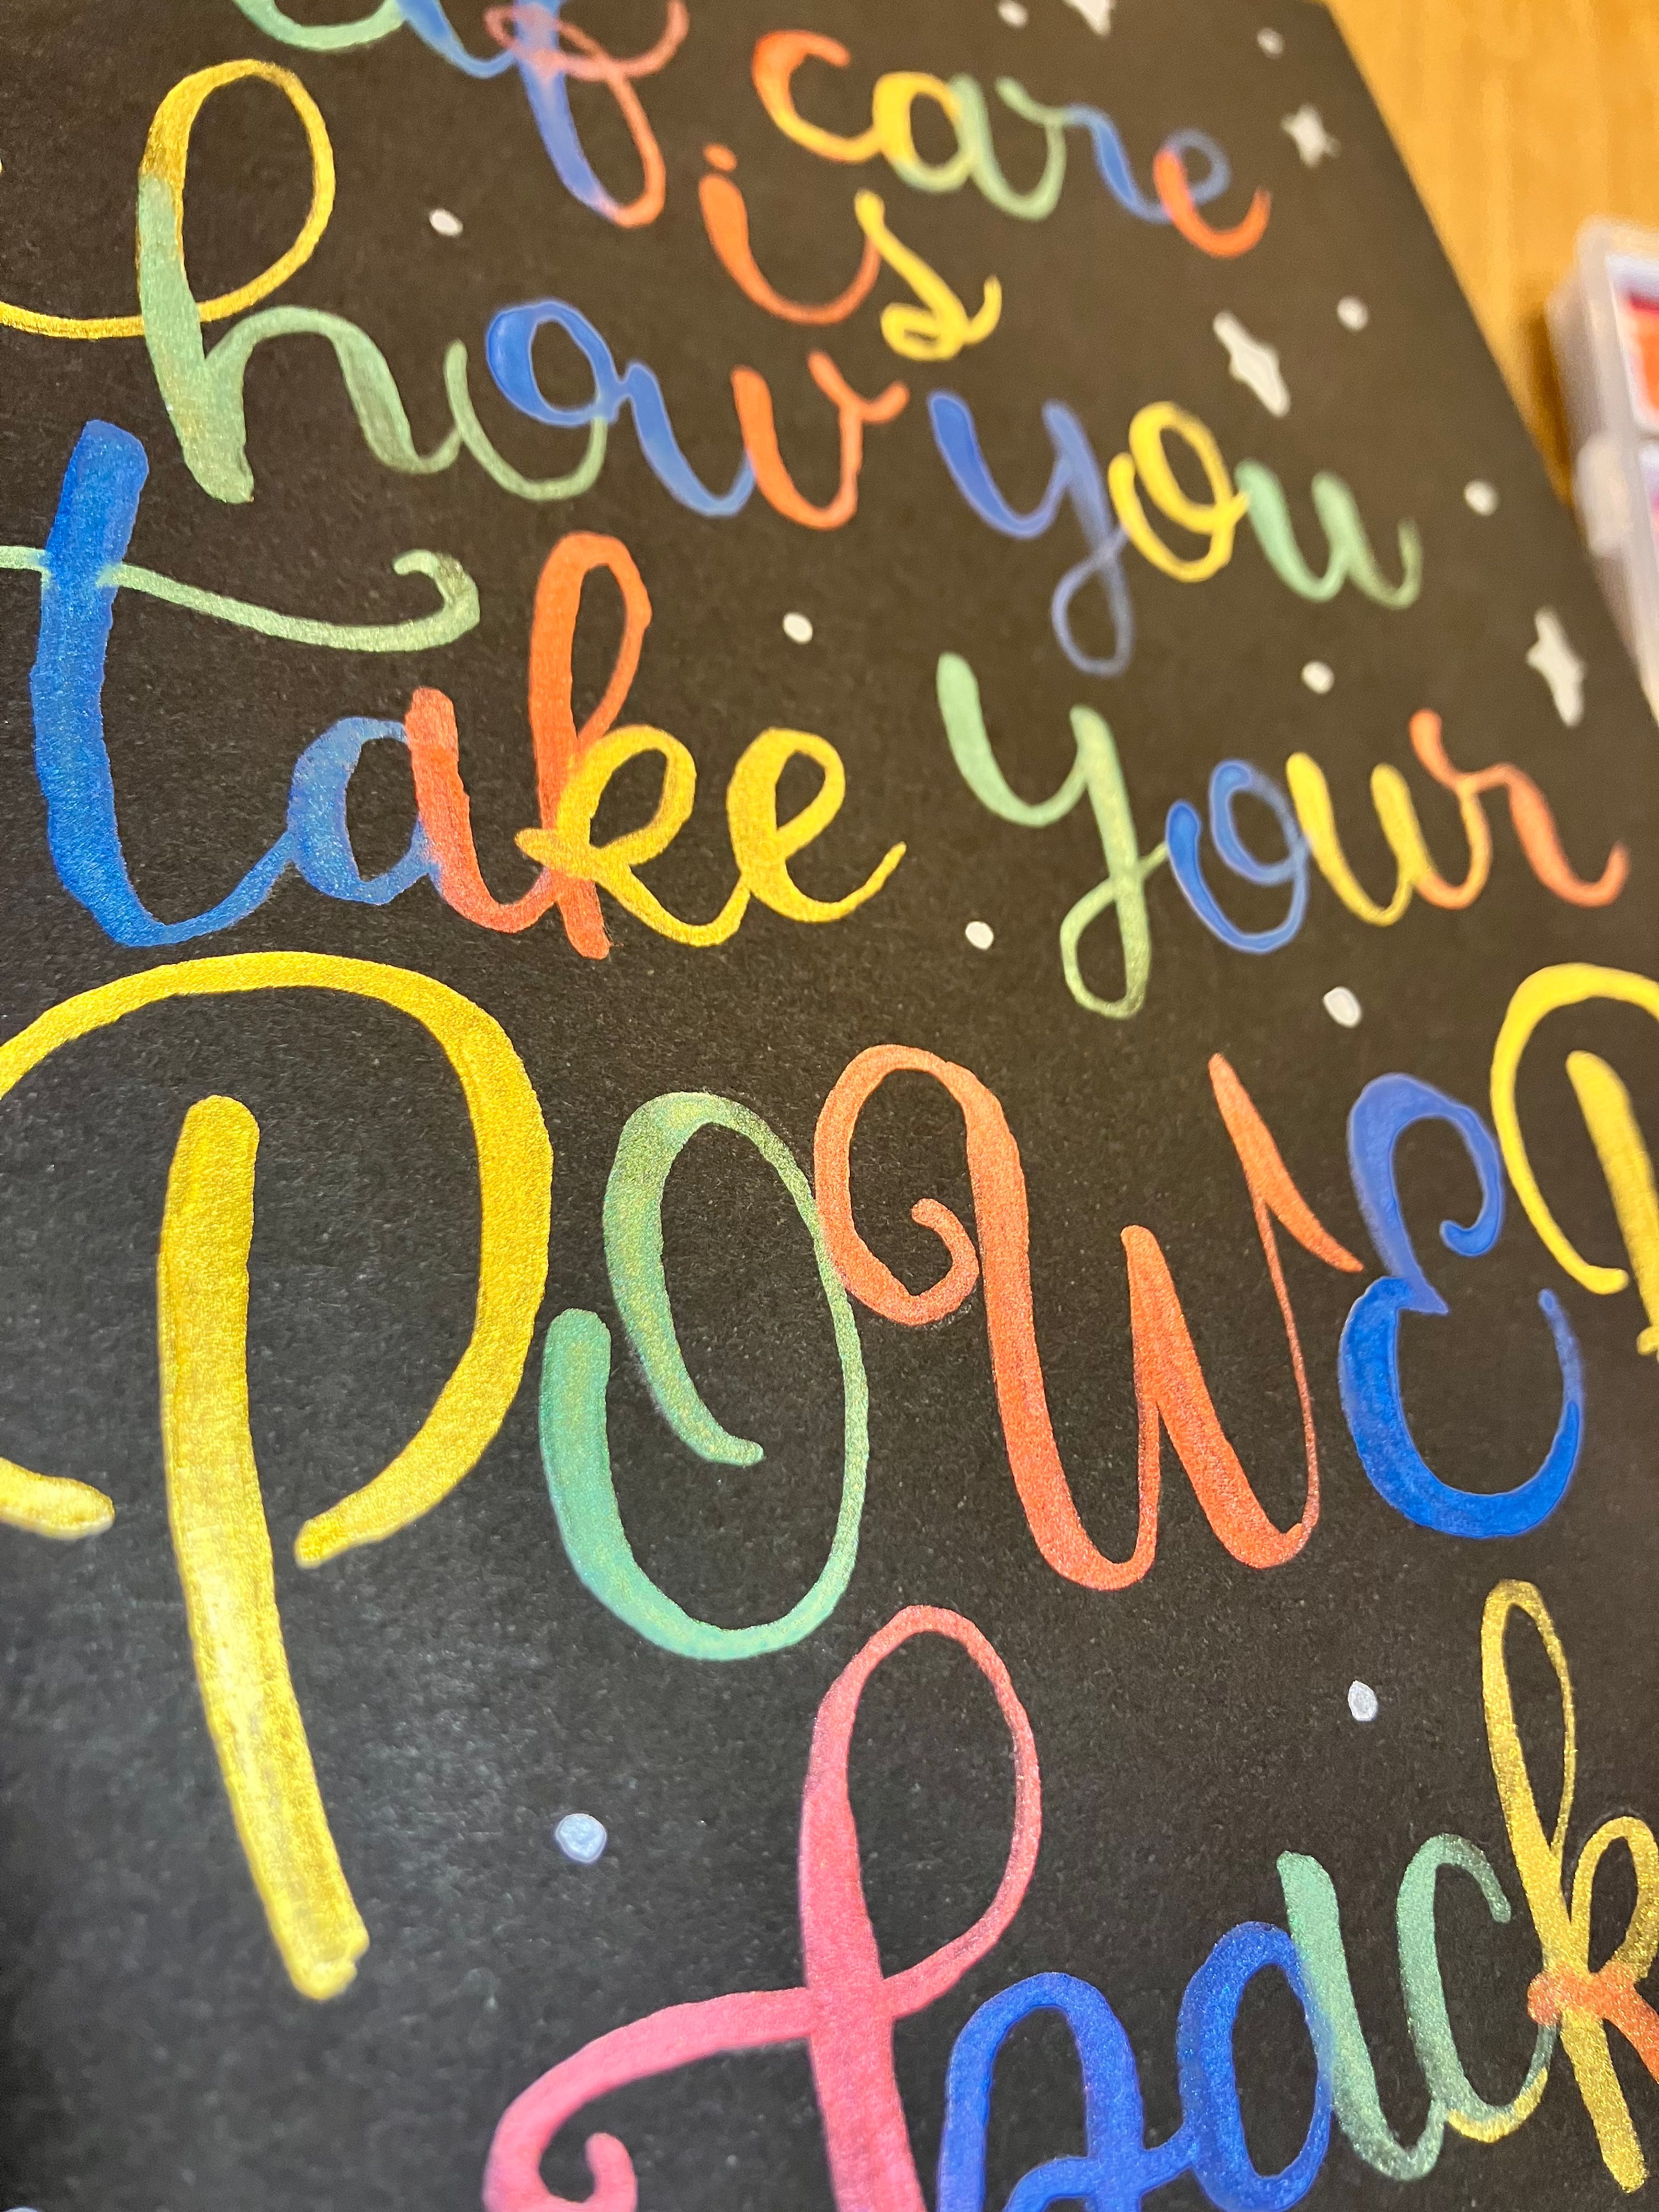 elf care
is
how you
take your
POWER
back